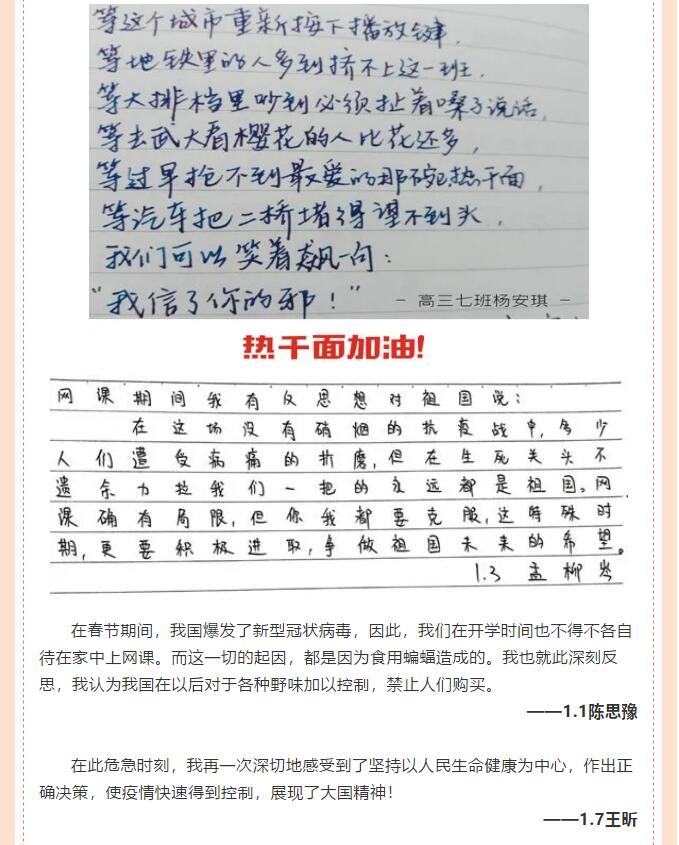 等这个城市重新按下播放键，
等地铁里的人多到挤不上这一班，
等大排档里吵到必须扯着嗓子说话，
等去武大看樱花的人比花还多，
等过早抢不到最爱的那碗热干面，
等汽车把二桥堵得望不到头，
我们可以笑着飙一句：
“我信了你的邪！”
– 高三七班杨安琪 –
热干面加油!
网课期间我有仅思想对祖国说：
在这场没有硝烟的抗疫战中，多少
人们遭受病痛的折磨，但在生死关头不
遗余力拉我们一把的永远都是祖国。网
课确有局限，但你我都要克服，这特殊时
期，更要积极进取，争做祖国未来的希望。
1.3 孟柳岑
在春节期间，我国爆发了新型冠状病毒，因此，我们在开学时间也不得不各自
待在家中上网课。而这一切的起因，都是因为食用蝙蝠造成的。我也就此深刻反
思，我认为我国在以后对于各种野味加以控制，禁止人们购买。
——1.1陈思豫
在此危急时刻，我再一次深切地感受到了坚持以人民生命健康为中心，作出正
确决策，使疫情快速得到控制，展现了大国精神！
——1.7王昕